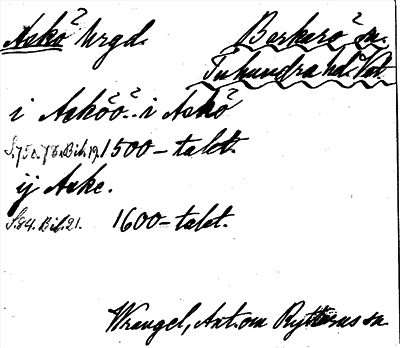 Askö hrgd. Barkarö sn.
Tuhundra hd. Vstm.
i Asköö. i Askö
S. 75 o. 78. Bih. 19. 1500-talet.
ij Aske.
S. 84. Bih. 21. 1600-talet.
Wrangel, Ant. om Rytterns sn.